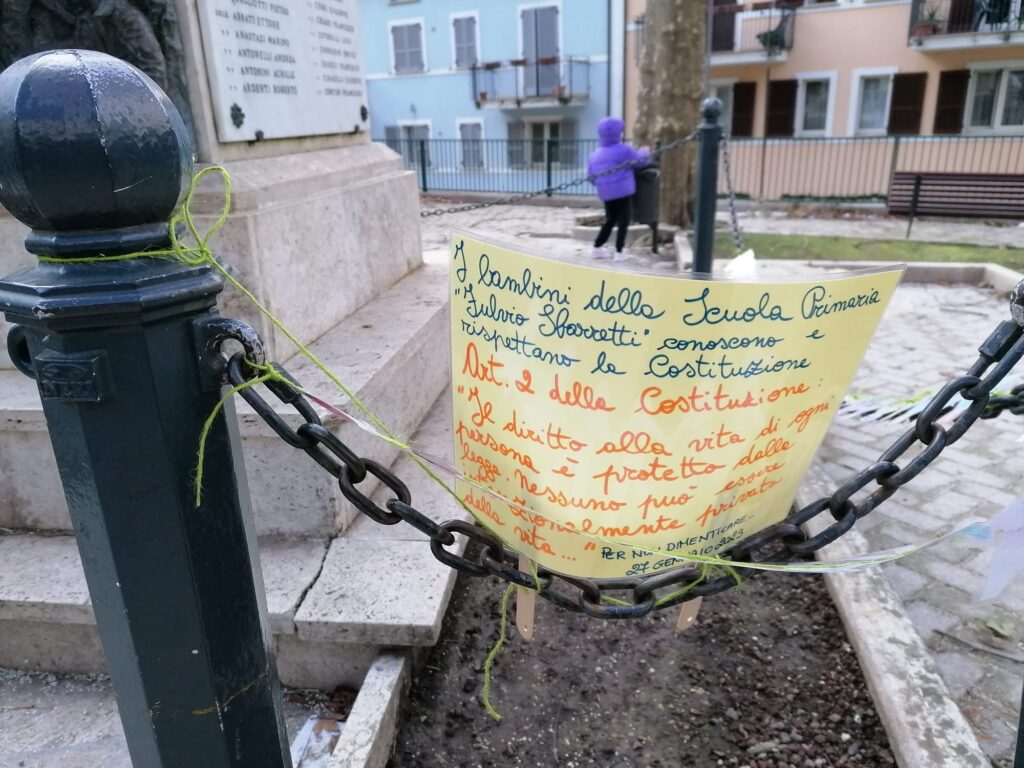 ABBATI ETTORE
ANASTASI MARINO
ANTONELLI ANDREA
ANTONINI ACHILLE
ARDENTI ROBERTO
I bambini della Scuola Primaria
"Fulvio Sbarretti" conoscono e
rispettano la Costituzione
Art. 2 della Costituzione:
"Il diritto alla vita di ogni
persona è protetto dalla
legge. Nessuno può essere
intenzionalmente privato
della vita..."
PER NON DIMENTICARE...
27 GENNAIO 2023